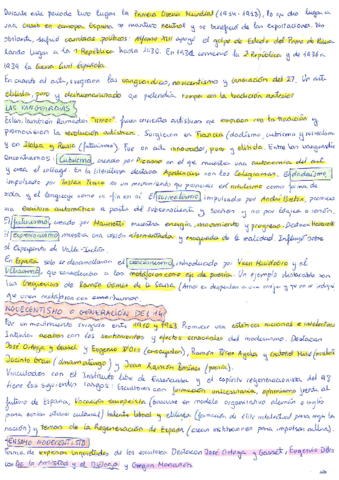 Durante este periodo tuvo lugar la Primera Guerra Mundial (1914-1918), lo que dio lugar a
una crisis en Europa, España se mantuvo neutral y se benefició de las exportaciones. No
obstante, sufrió cambios políticos. Alfonso XIII apoyó el golpe de Estado del Primo de Rivera
dando lugar a la República hasta 1930. En 1931 comenzó la 2 República y de 1936 a
1939 la Guerra Civil Española.
En cuanto al arte, surgieron las vanguardias, novecentismo y Generación del 27. Un arte
elitista, puro y deshumanizado que pretendía romper con la tradición anterior
LAS VANGUARDIAS
También llamadas "ismos" fueron corrientes artísticas que rompían con la tradición y
promovieron la revolución artística. Surgieron en Francia (dadaísmo, cubismo y surrealismo)
y en Italia y Rusia (futurismo). Fue un arte innovador, puro y elitista. Entre las vanguardias
encontramos: Cubismo, creado por Picasso en el que muestra una autonomía del arte
y crea el collage. En la literatura destaca Apollinaire con los Caligramas. El dadaísmo,
impulsado por Tristan Tzara es un movimiento que promueve el nihilismo como forma de
vida, y el lenguaje como un fin en sí. El surrealismo, impulsado por André Breton, promueve
la escritura automática a partir del subconsciente y sueños y no por lógica o razón.
El futurismo, creado por Marinetti muestra energía, movimiento y progreso. Destaca
El expresionismo muestra una visión atormentada y exagerada de la realidad. Influyó sobre
el esperpento de Valle-Inclán.
En España solo se desarrollaron el creacionismo, introducido por Vicente Huidobro y el
Ultraísmo, que consideraba a las metáforas como eje de poesía. Un ejemplo destacable son
las Greguerías de Ramón Gómez de la Serna (Amor es despertar a una mujer y que no se indigne)
que unen metáfora con
NOVECENTISMO O GENERACIÓN DEL 14
Fue un movimiento surgido entre 1910 y 1923. Promueve una estética racional e intelectual.
Intentan acabar con los sentimientos y efectos sensoriales del modernismo. Destacan
José Ortega y Gasset y Eugenio D'Ors (ensayistas), Ramón Pérez Ayala y Gabriel Miró (novelistas)
Jacinto Grau (dramaturgo) y Juan Ramón Jiménez (poesía).
Vinculados con el Instituto libre de Enseñanza y el espíritu regeneracionista del 98
tiene los siguientes rasgos: Escritores con formación universitaria, optimismo frente al
futuro de España, vocación europeísta (buscar en modelo organizativo alemán o inglés
para evitar atraso cultural), talante liberal y elitista (formación de élite intelectual para regir la
nación) y temas de la Regeneración de España (crean instituciones para impulsar cultura).
ENSAYO NOVECENTISTA
Forma de expresar inquietudes de los escritores. Destacan José Ortega y Gasset, Eugenio D'Ors
con De la Amistad y el Diálogo y Gregorio Marañón.